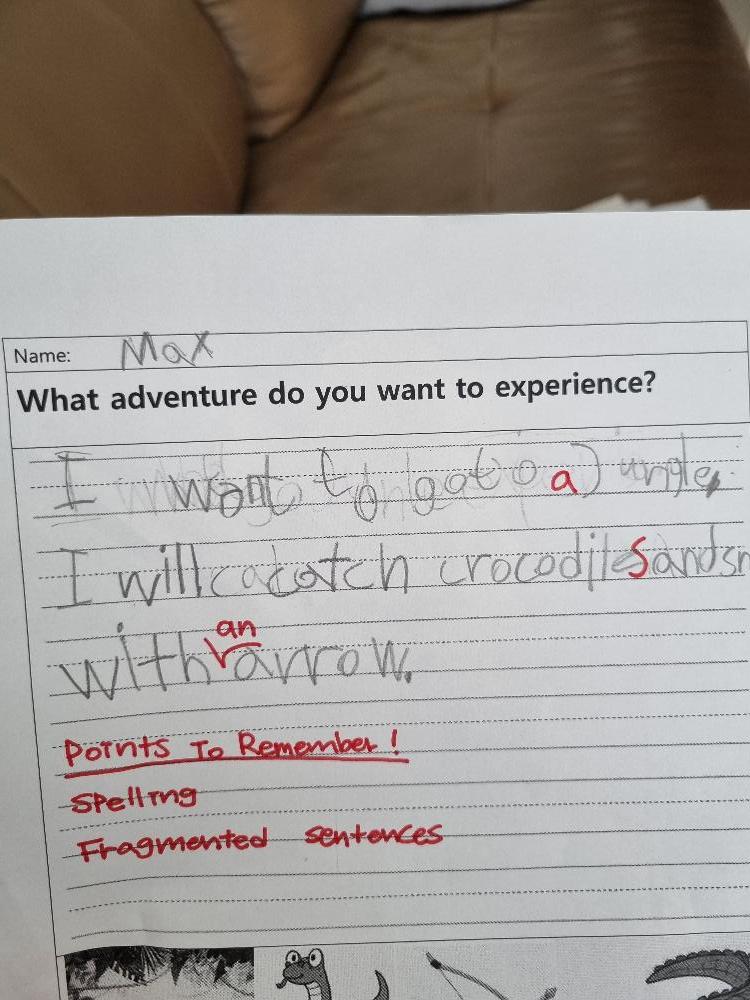 Name: Max
What adventure do you want to experience?
I want to goto a Jungle,
I will cacatch crocodilesandsn
with an arrow.
Points To Remember!
Spelling
Fragmented sentences